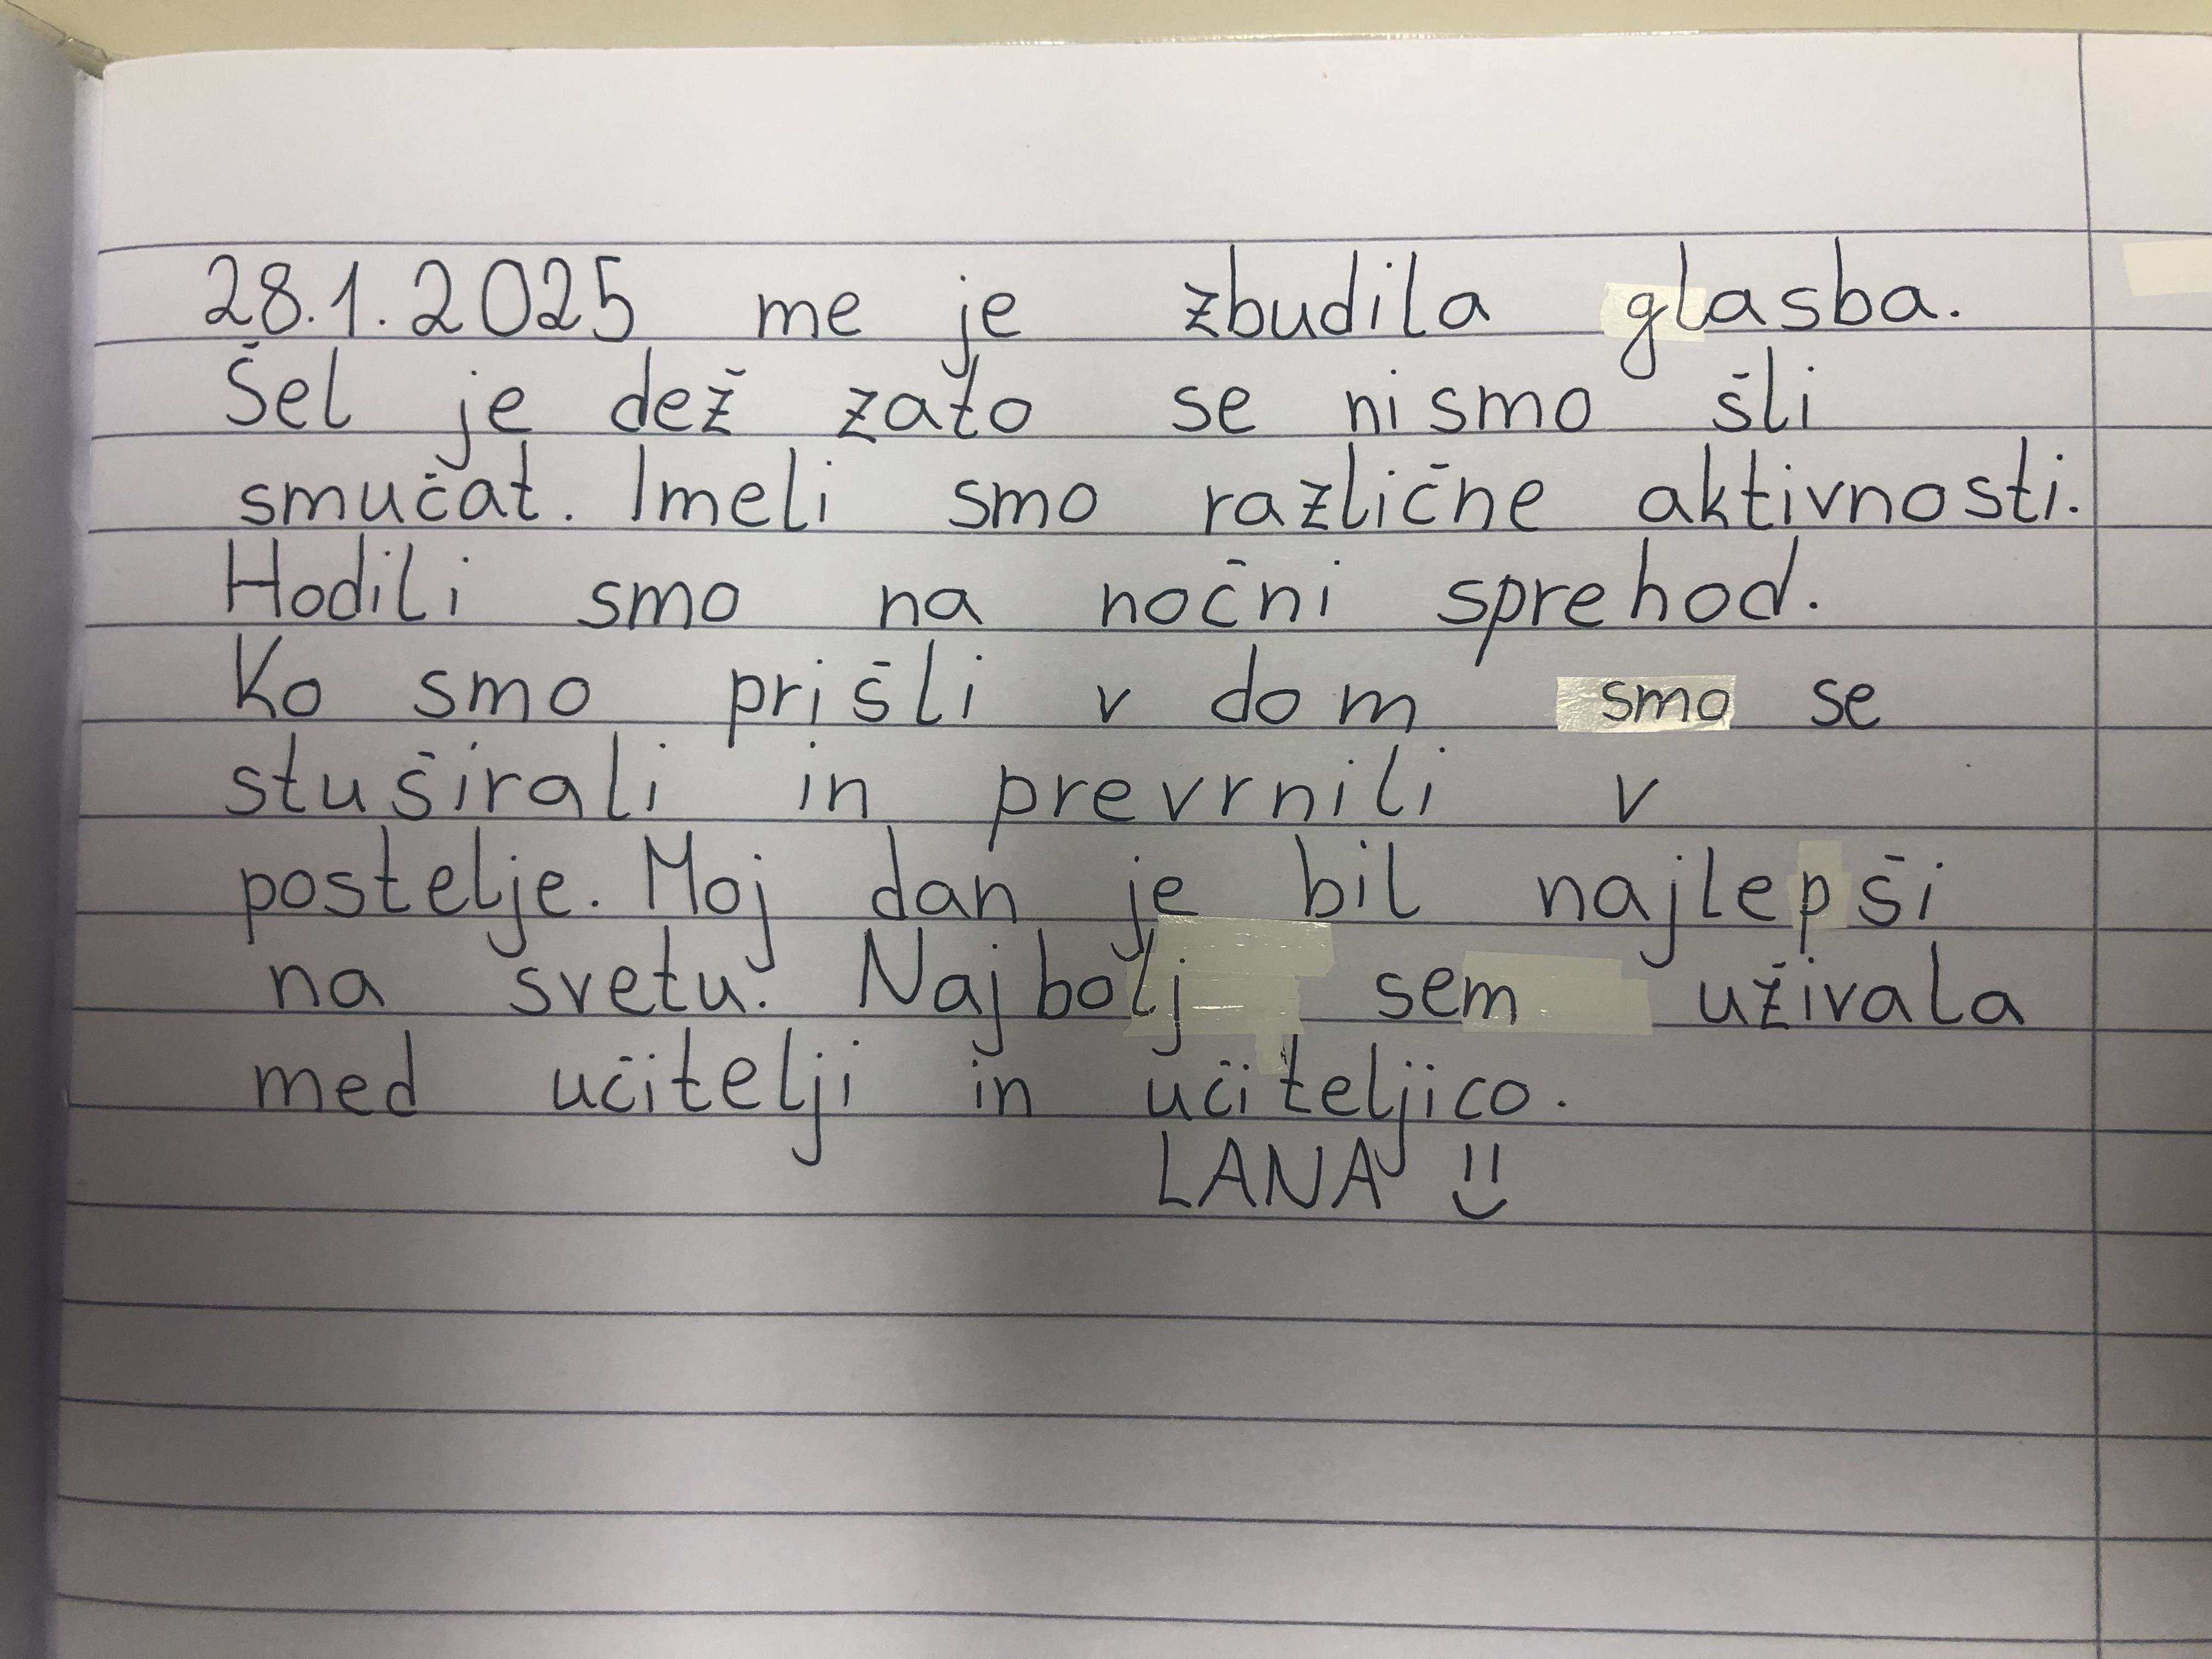 28.1.2025 me je zbudila glasba.
Šel je dež zato se nismo šli
smučat. Imeli smo različne aktivnosti.
Hodili smo na nočni sprehod.
Ko smo prišli v dom smo se
stuširali in prevrnili v
postelje. Moj dan je bil najlepši
na svetu. Najbolj sem uživala
med učitelji in učiteljico.
LANA